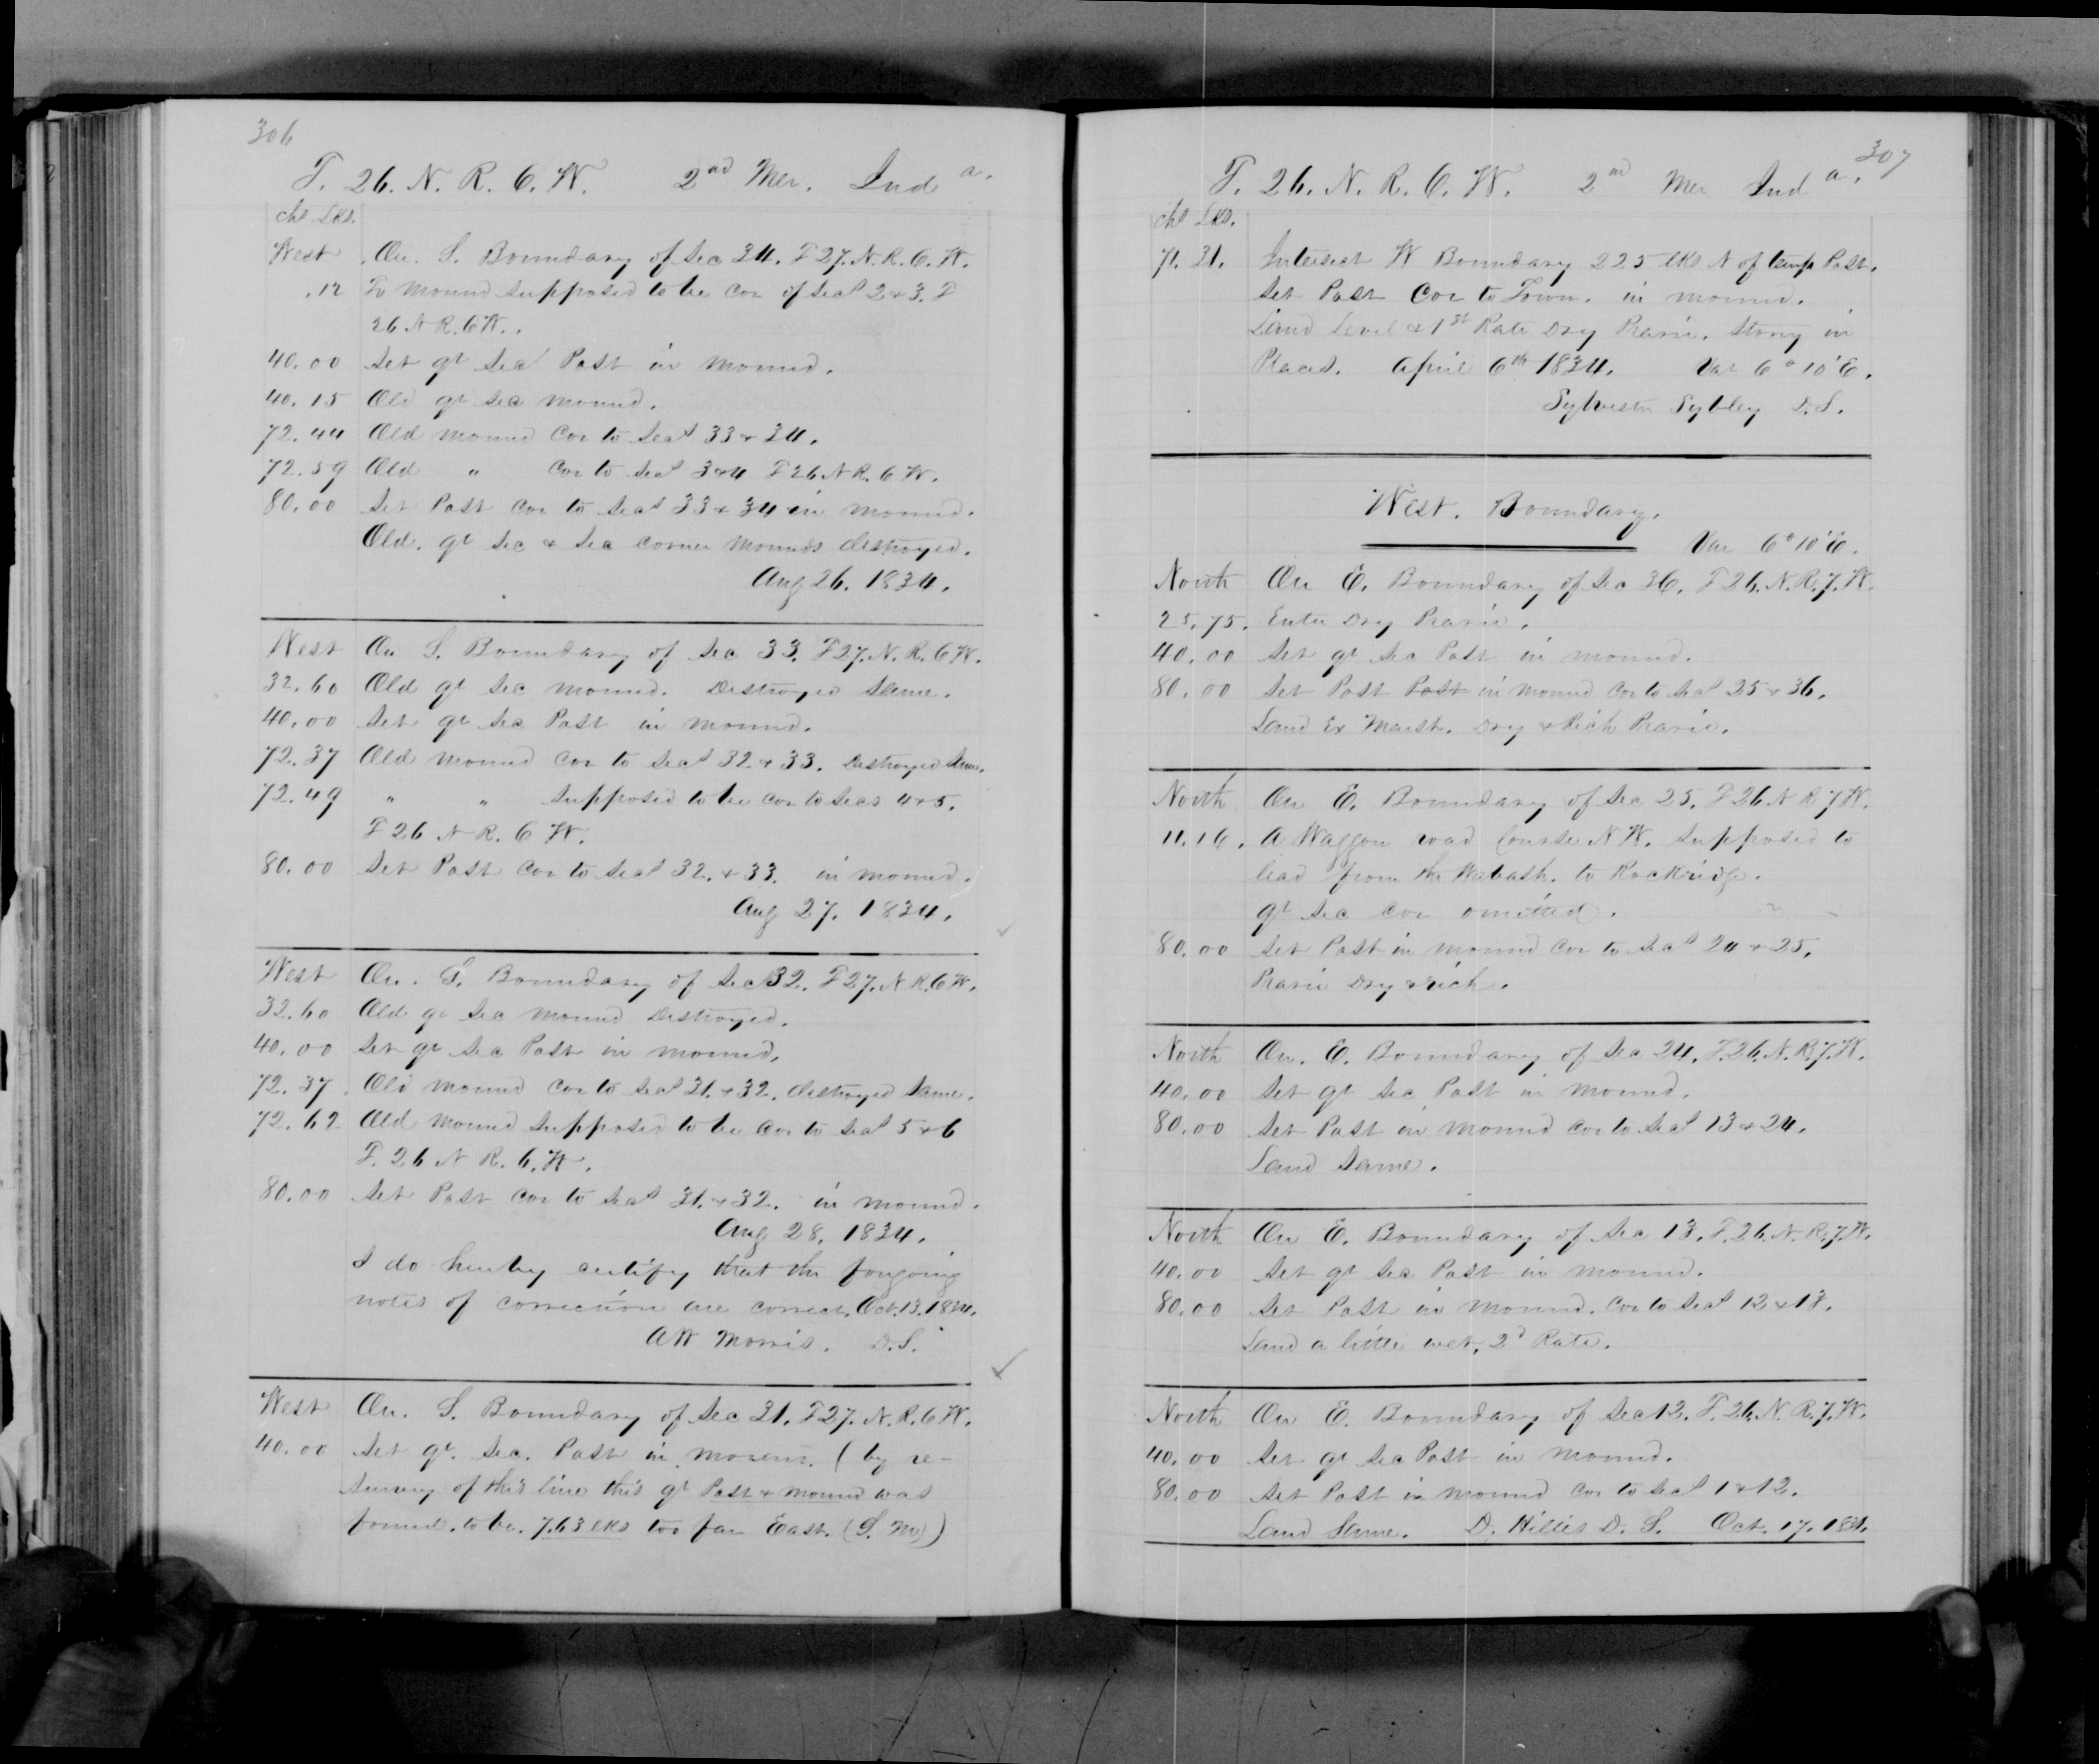 306
T. 26. N. R. 6. W. 2nd Mer. Ind a.
chs Lks.
West On. S. Boundary of Sec 34. T27. N. R. 6. W.
.12 To Mound supposed to be Cor of Secs 2 & 3. T
26 N R. 6 W.
40.00 Set qr Sec Post in Mound.
40.15 Old qr Sec Mound.
72.44 Old Mound Cor to Secs 33 & 34.
72.59 Old " Cor to Secs 3 & 4 T26 N R. 6 W.
80.00 Set Post Cor to Secs 33 & 34 in Mound.
Old. qr Sec & Sec Corner Mounds destroyed.
Aug 26. 1834.
West On S. Boundary of Sec 33. T27. N. R. 6 W.
32.60 Old qr Sec Mound. Destroyed Same.
40.00 Set qr Sec Post in Mound.
72.37 Old Mound Cor to Secs 32 & 33. Destroyed Same.
72.49 " " Supposed to be Cor to Secs 4 & 5.
T26 N R. 6 W.
80.00 Set Post Cor to Secs 32. & 33. in Mound.
Aug 27. 1834.
West On. S. Boundary of Sec 32. T27. N R. 6 W.
32.60 Old qr Sec Mound Destroyed.
40.00 Set qr Sec Post in Mound.
72.37 Old Mound Cor to Secs 31. & 32. destroyed Same.
72.62 Old Mound Supposed to be Cor to Secs 5 & 6
T. 26 N R. 6. W.
80.00 Set Post Cor to Secs 31. & 32. in Mound.
Aug 28. 1834.
I do hereby certify that the forgoing
notes of correction are correct. Oct. 13. 1834.
AW Morris. D. S.
West On. S. Boundary of Sec 31. T27. N. R. 6 W.
40.00 Set qr. Sec. Post in Mound (by re-
survey of this line this qr Post & Mound was
found. to be. 7.63 lks too far East. (S. M))
307
T. 26. N. R. 6. W. 2nd Mer Ind a.
chs Lks.
71.31. Intersect W Boundary 225 lks N of temp Post.
Set Post Cor to Town. in Mound.
Land Level & 1st Rate Dry Prarie. Stony in
Places. April 6th 1834. Var 6° 10' E.
Sylvester Sybley D. S.
West. Boundary.
Var 6° 10' E.
North On E. Boundary of Sec 36. T26. N. R. 7. W.
25.75. Enter Dry Prarie.
40.00 Set qr Sec Post in Mound.
80.00 Set Post Post in Mound Cor to Secs 25 & 36.
Land Ex Marsh. Dry & Rich Prarie.
North On E. Boundary of Sec 25. T26 N R 7 W.
11.16. A Waggon road Course N W. Supposed to
lead from the Wabash. to Rockridge.
qr Sec Cor omitted.
80.00 Set Post in Mound Cor to Secs 24 & 25.
Prarie Dry & rich.
North On. E. Boundary of Sec 24. T. 26. N. R. 7. W.
40.00 Set qr Sec Post in Mound.
80.00 Set Post in Mound Cor to Secs 13 & 24.
Land Same.
North On E. Boundary of Sec 13. T. 26. N. R. 7. W.
40.00 Set qr Sec Post in Mound.
80.00 Set Post in Mound. Cor to Secs 12 & 13.
Land a little wet, 2d Rate.
North On E. Boundary of Sec 12. T. 26. N. R. 7. W.
40.00 Set qr Sec Post in Mound.
80.00 Set Post in Mound Cor to Secs 1 & 12.
Land Same. D. Hillis D. S. Oct. 17.